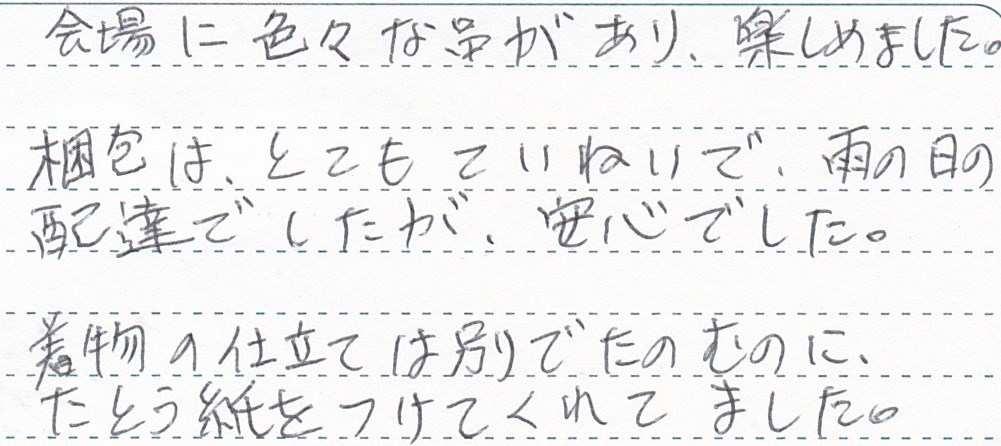 会場に色々な品があり、楽しめました。
梱包は、とてもていねいで、雨の日の
配達でしたが、安心でした。
着物の仕立ては別でたのむのに、
たとう紙をつけてくれてました。